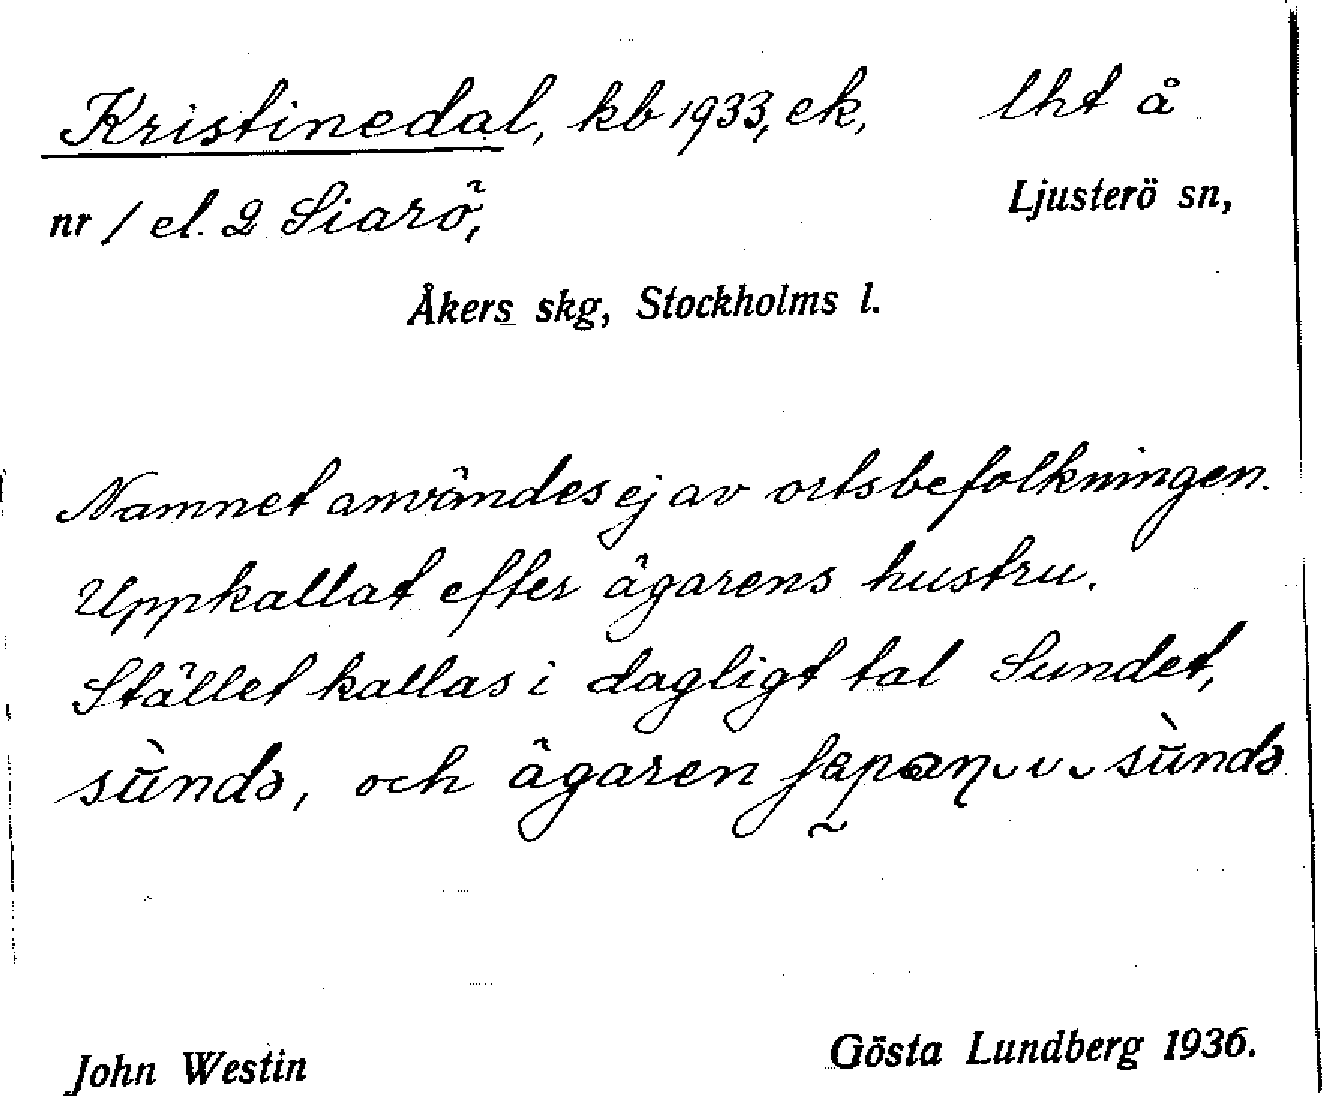 Kristinedal, kb 1933, ek, lht å
nr 1 el. 2 Siarö, Ljusterö sn,
Åkers skg, Stockholms l.
Namnet användes ej av ortsbefolkningen.
Uppkallat efter ägarens hustru.
Stället kallas i dagligt tal Sundet,
och ägaren
John Westin Gösta Lundberg 1936.